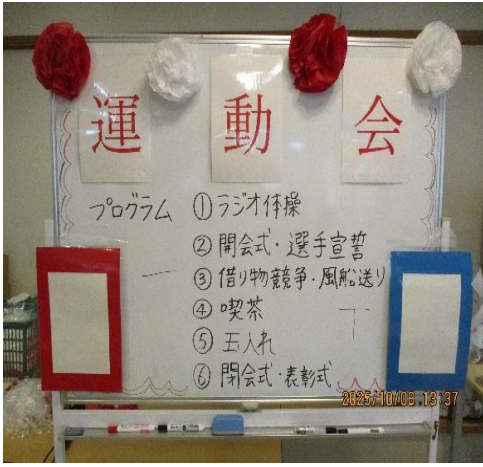 運動会
プログラム ①ラジオ体操
②開会式・選手宣誓
③借り物競争・風船送り
④喫茶
⑤玉入れ
⑥閉会式・表彰式
2025/10/09 13:37